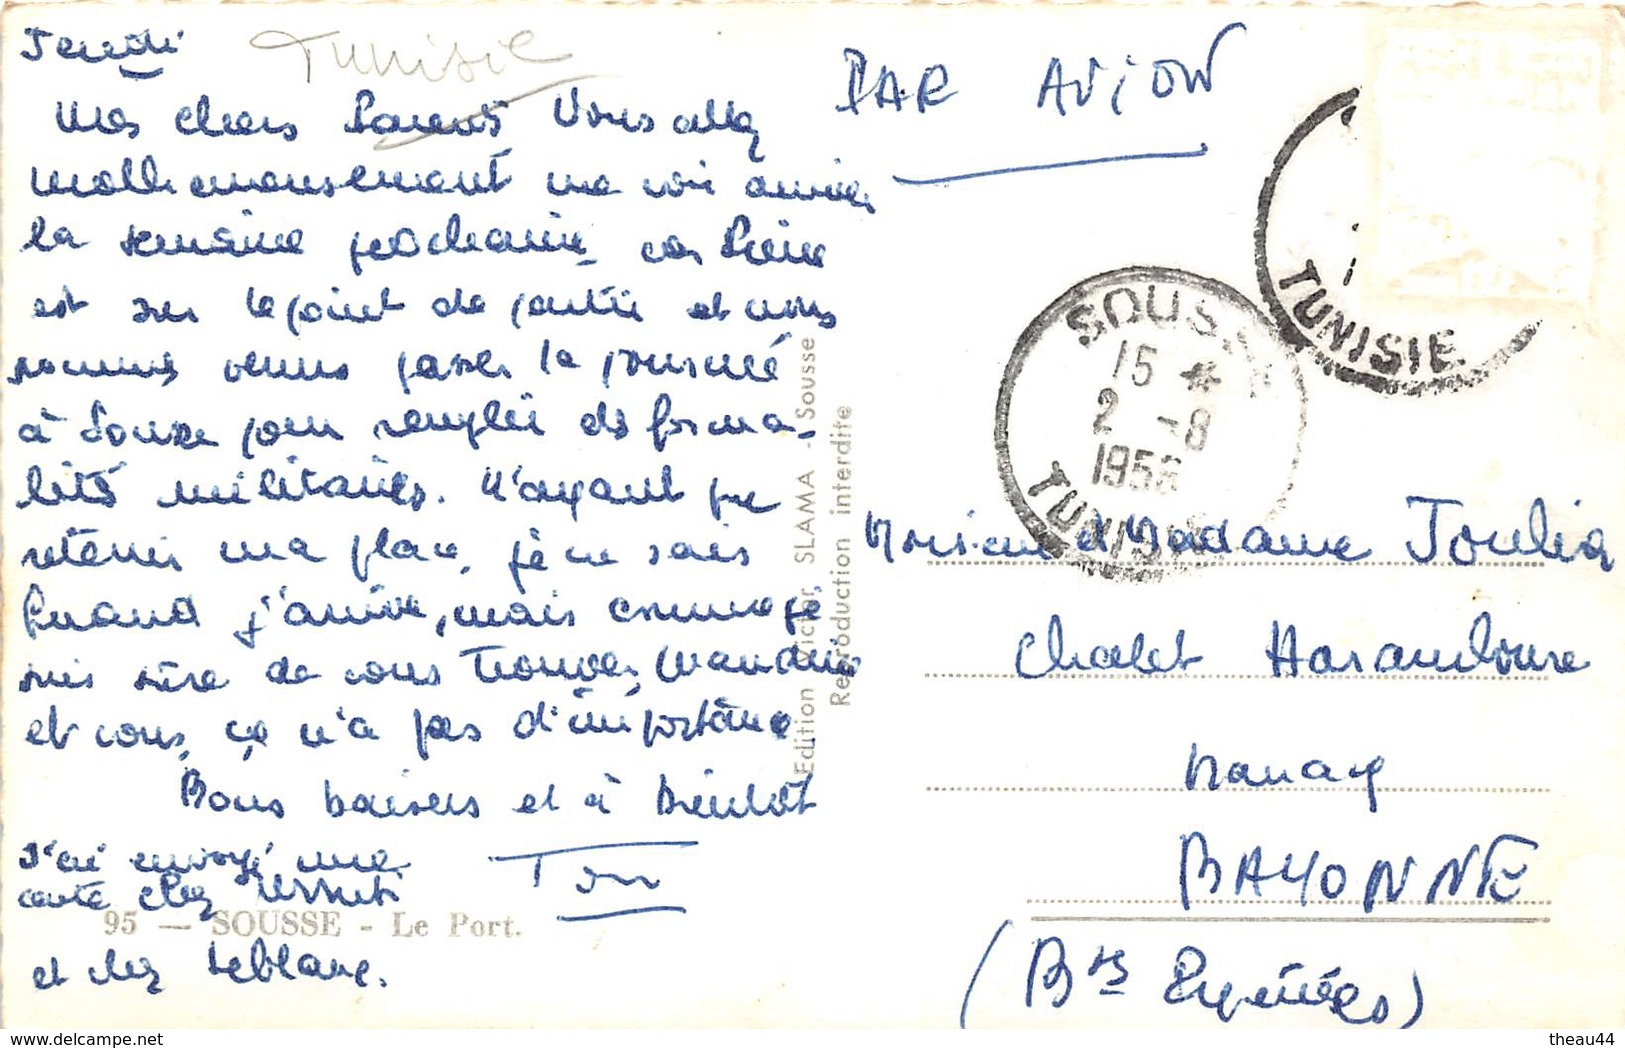 Jeudi
Tunisie
PAR AVION
Mes chers Parents Vous allez
malheureusement me voir arriver
la semaine prochaine, car Pierre
est sur le point de partir et nous
sommes venus passer la journée
à Sousse pour remplir des forma-
lités militaires. N'ayant pu
retenir ma place, je ne sais
quand j'arrive, mais comme je
suis sûre de vous trouver,
et vous, ça n'a pas d'importance.
Bons baisers et à bientôt
J'ai envoyé une
carte chez
et chez Leblanc.
95 — SOUSSE - Le Port.
Edition Victor SLAMA - Sousse
Reproduction interdite
TUNISIE
SOUSSE
15 *
2 -8
1956
TUNISIE
Monsieur et Madame Joulia
Chalet
Maracq
BAYONNE
(Bses Pyrénées)
theau44